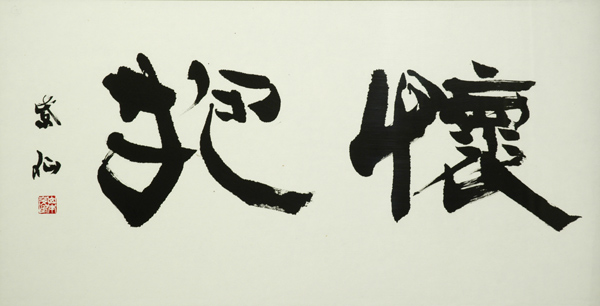 懷抱
紫仙